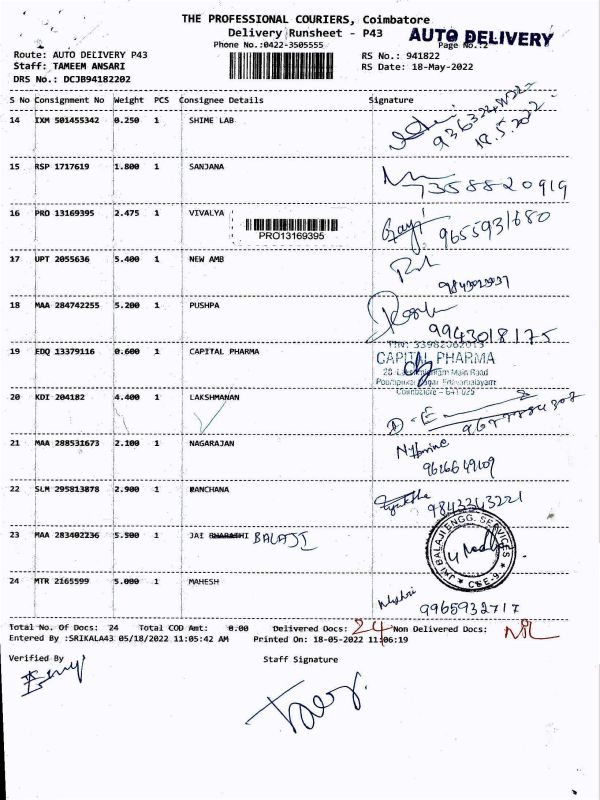 THE PROFESSIONAL COURIERS, Coimbatore
Delivery Runsheet - P43
AUTO DELIVERY
Phone No.:0422-3505555
Page No.:2
Route: AUTO DELIVERY P43
RS No.: 941822
Staff: TAMEEM ANSARI
RS Date: 18-May-2022
DRS No.: DCJB94182202
S No Consignment No Weight PCS Consignee Details Signature
14 IXM 501455342 0.250 1 SHIME LAB
18.5.2022
15 RSP 1717619 1.800 1 SANJANA
7358820919
16 PRO 13169395 2.475 1 VIVALYA
PRO13169395
9655931680
17 UPT 2055636 5.400 1 NEW AMB
18 MAA 284742255 5.200 1 PUSHPA
9943018175
19 EDQ 13379116 0.600 1 CAPITAL PHARMA
CAPITAL PHARMA
Main Road
Coimbatore - 641 025
20 KDI 204182 4.400 1 LAKSHMANAN
21 MAA 288531673 2.100 1 NAGARAJAN
9616649109
22 SLM 295813878 2.900 1 RANCHANA
9843343221
23 MAA 283402236 5.500 1 JAI BHARATHI BALAJI
JAI BALAJI ENGG. SERVICES
CBE-9.
24 MTR 2165599 5.000 1 MAHESH
9965932717
Total No. Of Docs: 24 Total COD Amt: 0.00 Delivered Docs: 24 Non Delivered Docs: NIL
Entered By :SRIKALA43 05/18/2022 11:05:42 AM Printed On: 18-05-2022 11:06:19
Verified By Staff Signature